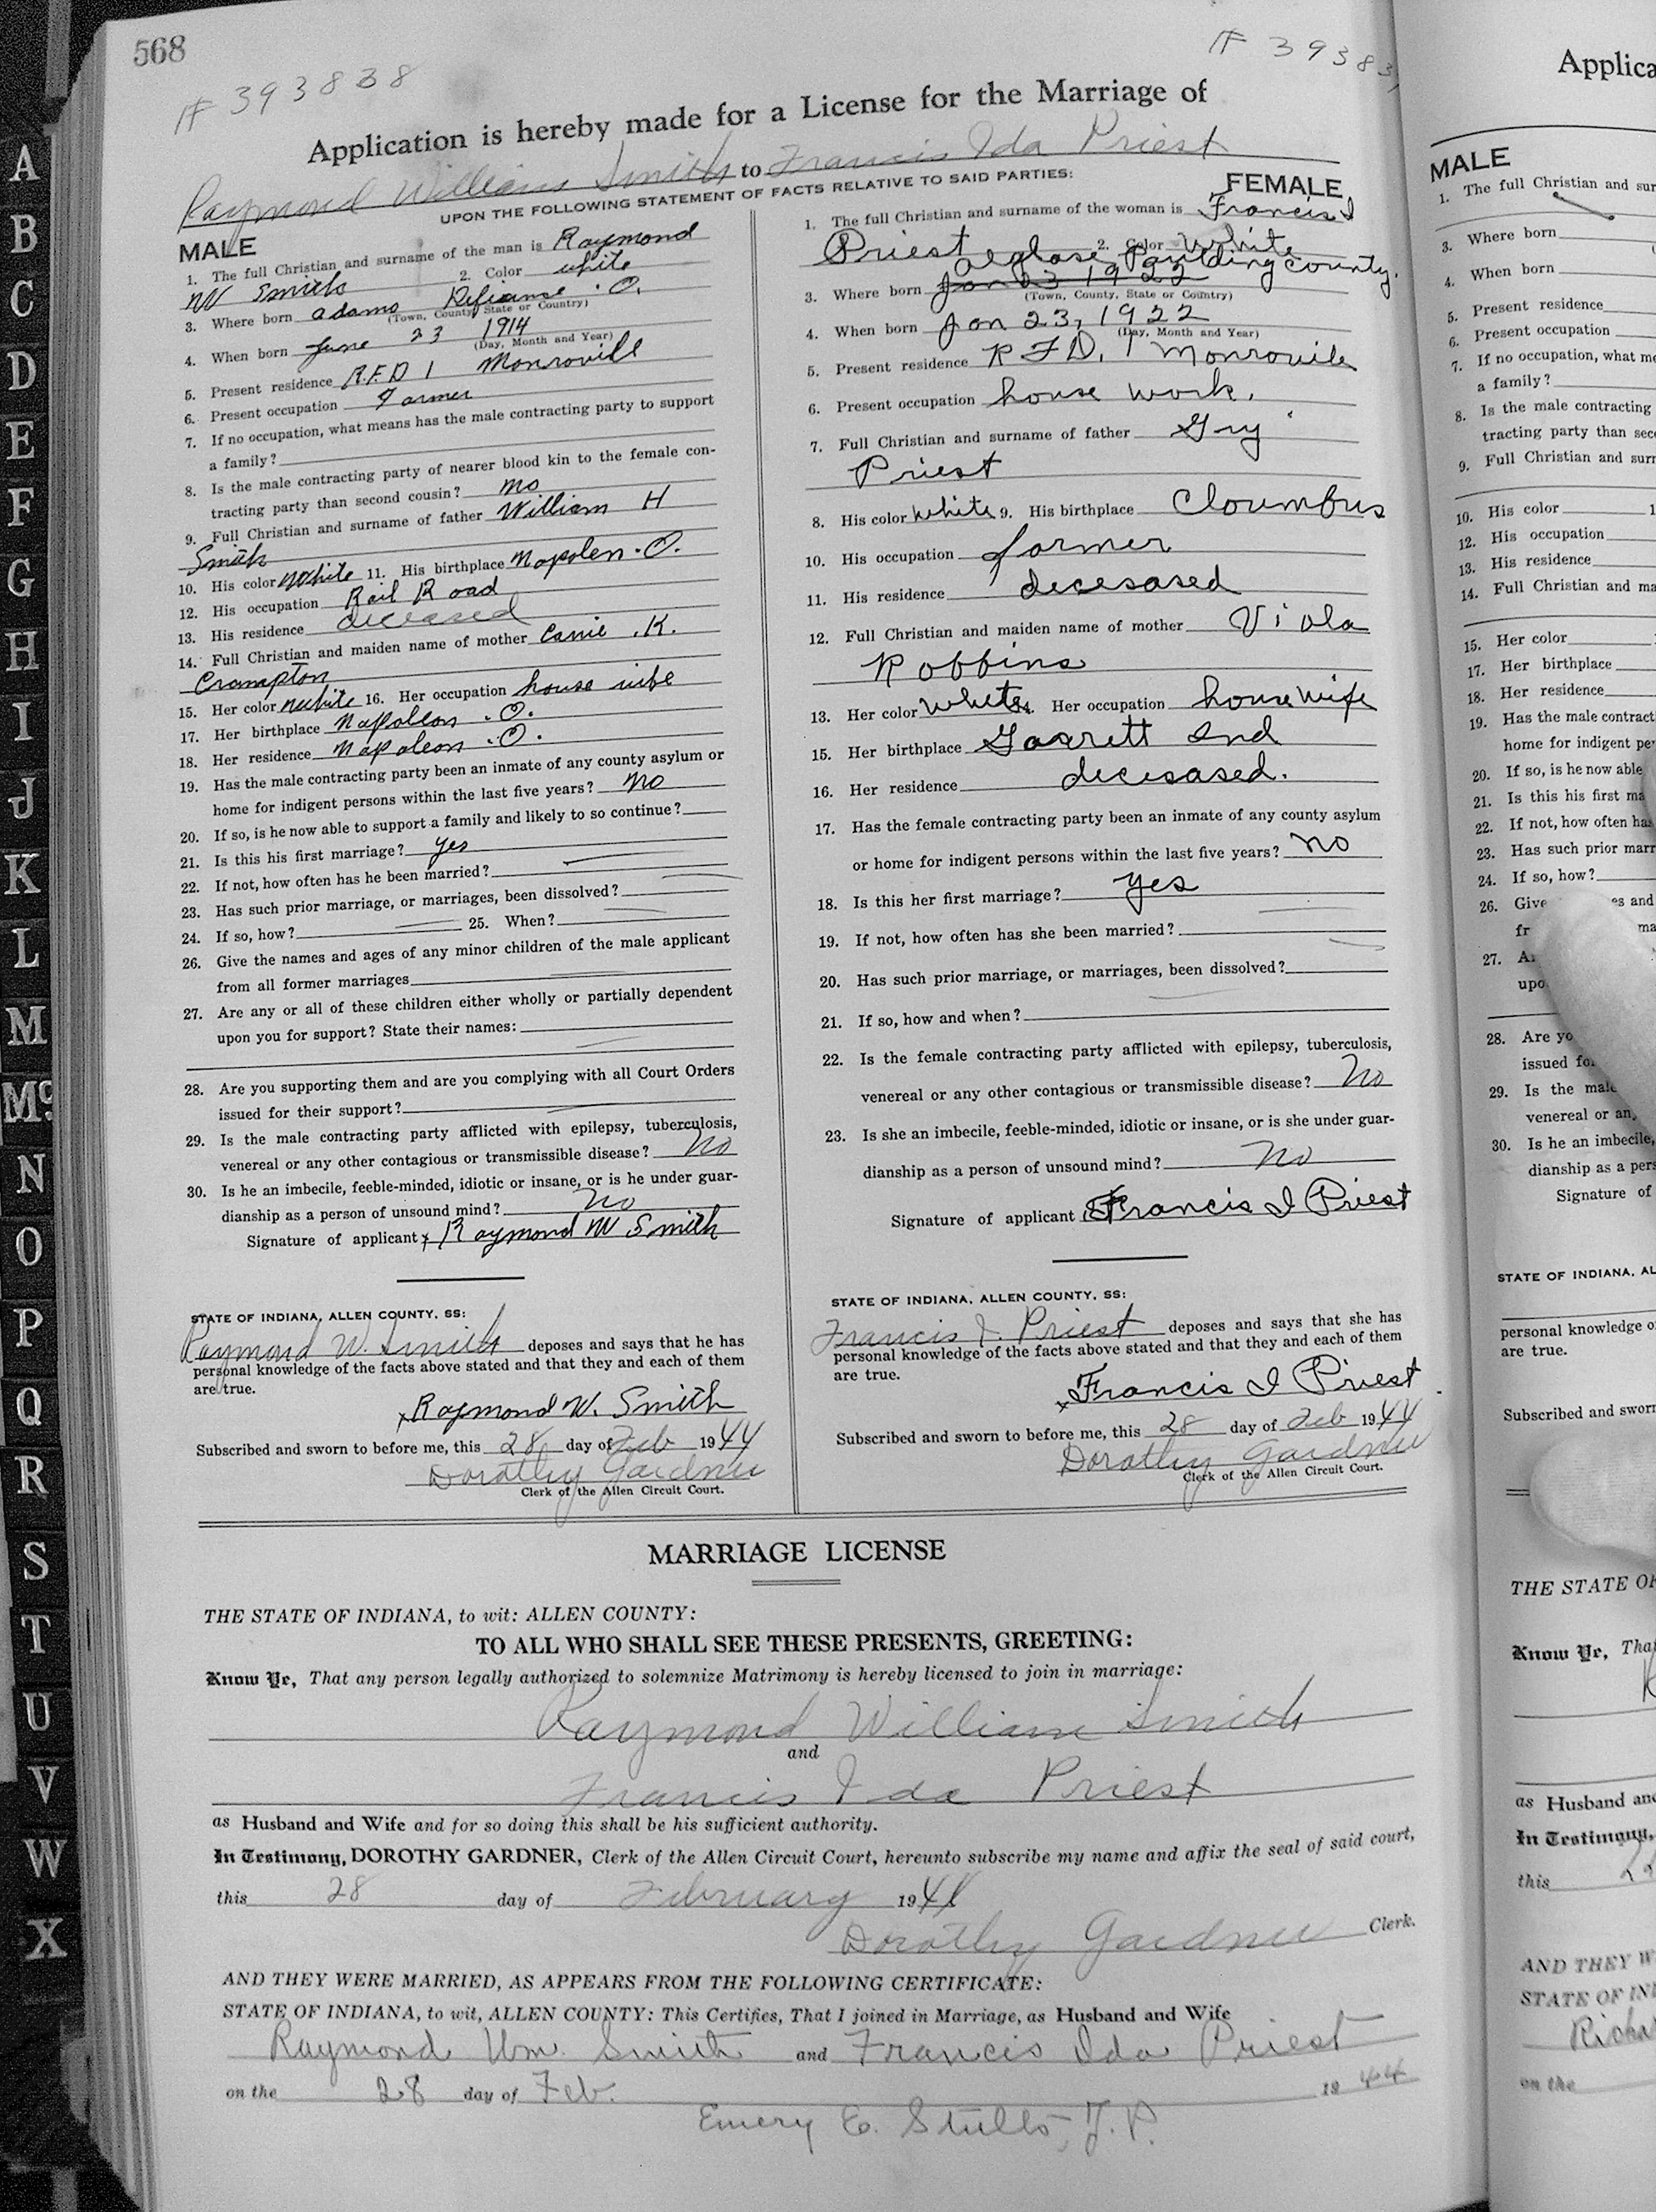 568
# 393838
# 39383
Application is hereby made for a License for the Marriage of
Raymond William Smith to Francis Ida Priest
UPON THE FOLLOWING STATEMENT OF FACTS RELATIVE TO SAID PARTIES:
MALE
1. The full Christian and surname of the man is Raymond
W Smith 2. Color white
3. Where born Adams Defiance . O.
(Town, County, State or Country)
4. When born June 23 1914
(Day, Month and Year)
5. Present residence R.F.D 1 Monrovill
6. Present occupation Farmer
7. If no occupation, what means has the male contracting party to support
a family?
8. Is the male contracting party of nearer blood kin to the female con-
tracting party than second cousin? no
9. Full Christian and surname of father William H
Smith
10. His color white 11. His birthplace Napolen . O.
12. His occupation Rail Road
13. His residence deceased
14. Full Christian and maiden name of mother Carrie . K.
Crampton
15. Her color white 16. Her occupation house wife
17. Her birthplace Napoleon . O.
18. Her residence Napoleon . O.
19. Has the male contracting party been an inmate of any county asylum or
home for indigent persons within the last five years? no
20. If so, is he now able to support a family and likely to so continue?
21. Is this his first marriage? yes
22. If not, how often has he been married?
23. Has such prior marriage, or marriages, been dissolved?
24. If so, how? 25. When?
26. Give the names and ages of any minor children of the male applicant
from all former marriages
27. Are any or all of these children either wholly or partially dependent
upon you for support? State their names:
28. Are you supporting them and are you complying with all Court Orders
issued for their support?
29. Is the male contracting party afflicted with epilepsy, tuberculosis,
venereal or any other contagious or transmissible disease? No
30. Is he an imbecile, feeble-minded, idiotic or insane, or is he under guar-
dianship as a person of unsound mind? No
Signature of applicant x Raymond W Smith
STATE OF INDIANA, ALLEN COUNTY, SS:
Raymond W. Smith deposes and says that he has
personal knowledge of the facts above stated and that they and each of them
are true.
x Raymond W. Smith
Subscribed and sworn to before me, this 28 day of Feb 1944
Dorothy Gardner
Clerk of the Allen Circuit Court.
FEMALE
1. The full Christian and surname of the woman is Francis I
Priest 2. Color White
Oglase, Paulding county.
3. Where born Jan 23 1922
(Town, County, State or Country)
4. When born Jan 23, 1922
(Day, Month and Year)
5. Present residence R F D. 1 Monrovile
6. Present occupation house work.
7. Full Christian and surname of father Gry
Priest
8. His color white 9. His birthplace Cloumbus
10. His occupation farmer
11. His residence decesased
12. Full Christian and maiden name of mother Viola
Robbins
13. Her color White 14. Her occupation housewife
15. Her birthplace Garrett Ind
16. Her residence decesased.
17. Has the female contracting party been an inmate of any county asylum
or home for indigent persons within the last five years? no
18. Is this her first marriage? yes
19. If not, how often has she been married?
20. Has such prior marriage, or marriages, been dissolved?
21. If so, how and when?
22. Is the female contracting party afflicted with epilepsy, tuberculosis,
venereal or any other contagious or transmissible disease? No
23. Is she an imbecile, feeble-minded, idiotic or insane, or is she under guar-
dianship as a person of unsound mind? No
Signature of applicant Francis I Priest
STATE OF INDIANA, ALLEN COUNTY, SS:
Francis I. Priest deposes and says that she has
personal knowledge of the facts above stated and that they and each of them
are true.
x Francis I Priest
Subscribed and sworn to before me, this 28 day of Feb 1944
Dorothy Gardner
Clerk of the Allen Circuit Court.
MARRIAGE LICENSE
THE STATE OF INDIANA, to wit: ALLEN COUNTY:
TO ALL WHO SHALL SEE THESE PRESENTS, GREETING:
Know Ye, That any person legally authorized to solemnize Matrimony is hereby licensed to join in marriage:
Raymond William Smith
and
Francis Ida Priest
as Husband and Wife and for so doing this shall be his sufficient authority.
In Testimony, DOROTHY GARDNER, Clerk of the Allen Circuit Court, hereunto subscribe my name and affix the seal of said court,
this 28 day of February 1944
Dorothy Gardner Clerk.
AND THEY WERE MARRIED, AS APPEARS FROM THE FOLLOWING CERTIFICATE:
STATE OF INDIANA, to wit, ALLEN COUNTY: This Certifies, That I joined in Marriage, as Husband and Wife
Raymond Wm. Smith and Francis Ida Priest
on the 28 day of Feb. 1944
Emery E. Stults, J.P.
A
B
C
D
E
F
G
H
I
J
K
L
M
Mc
N
O
P
Q
R
S
T
U
V
W
X
Applica
MALE
1. The full Christian and sur
3. Where born
4. When born
5. Present residence
6. Present occupation
7. If no occupation, what me
a family?
8. Is the male contracting
tracting party than sec
9. Full Christian and surr
10. His color
12. His occupation
13. His residence
14. Full Christian and ma
15. Her color
17. Her birthplace
18. Her residence
19. Has the male contract
home for indigent pe
20. If so, is he now able
21. Is this his first ma
22. If not, how often has
23. Has such prior marr
24. If so, how?
26. Give es and
fr ma
27. A
upo
28. Are yo
issued fo
29. Is the male
venereal or an
30. Is he an imbecile,
dianship as a pers
Signature of
STATE OF INDIANA, AL
personal knowledge o
are true.
Subscribed and sworn
THE STATE OF
Know Ye, That
as Husband and
In Testimony,
this
AND THEY W
STATE OF IN
Richa
on the